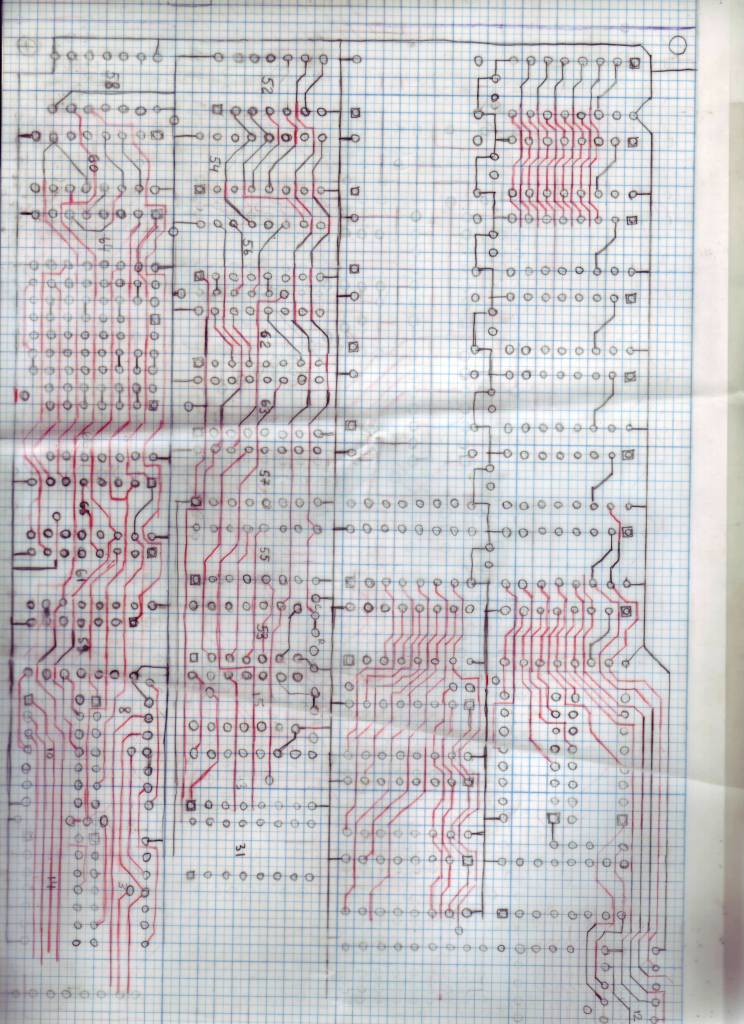 58
52
60
54
64
56
62
63
57
55
61
59
53
15
8
10
13
31
14
3
12